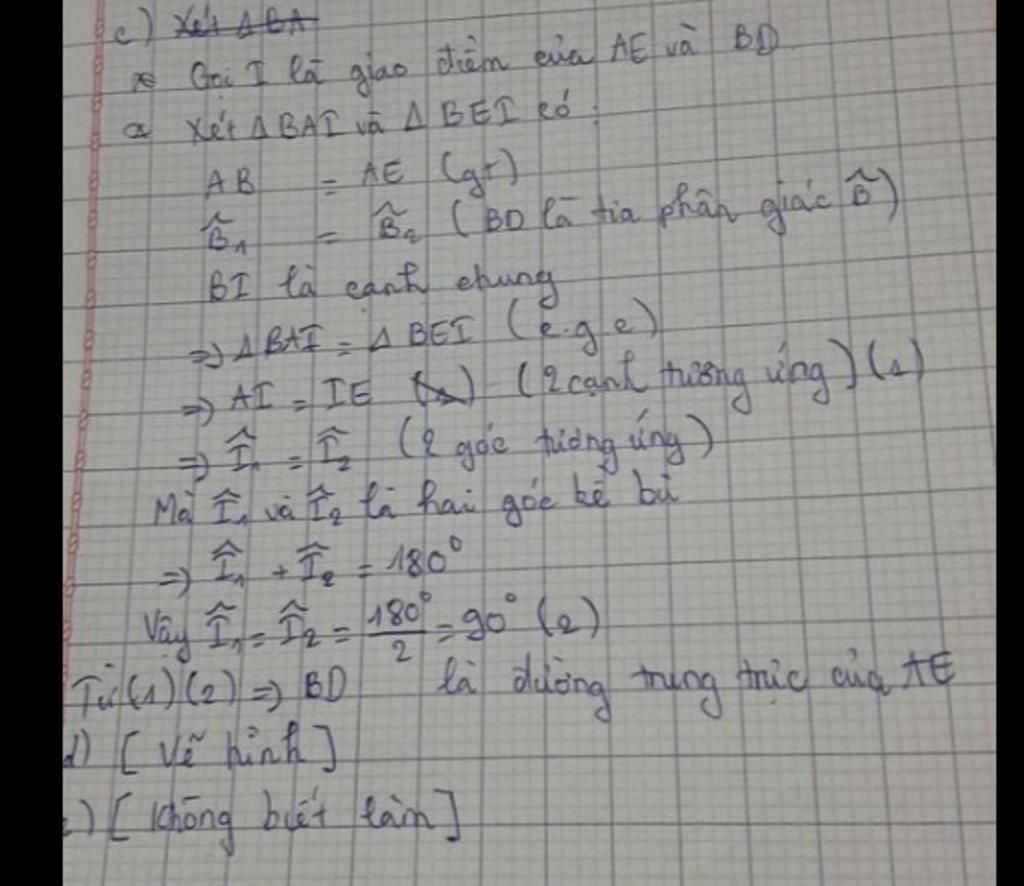 c) Xét ΔBA
* Gọi I là giao điểm của AE và BD
* Xét Δ BAI và Δ BEI có:
AB = AE (gt)
B̂₁ = B̂₂ (BD là tia phân giác B̂)
BI là cạnh chung
=> Δ BAI = Δ BEI (c.g c)
=> AI = IE (2 cạnh tương ứng) (1)
=> Î₁ = Î₂ (2 góc tương ứng)
Mà Î₁ và Î₂ là hai góc kề bù
=> Î₁ + Î₂ = 180°
Vậy Î₁ = Î₂ = 180°/2 = 90° (2)
Từ (1) (2) => BD là đường trung trực của AE
d) [ Vẽ hình ]
) [ Không biết làm ]